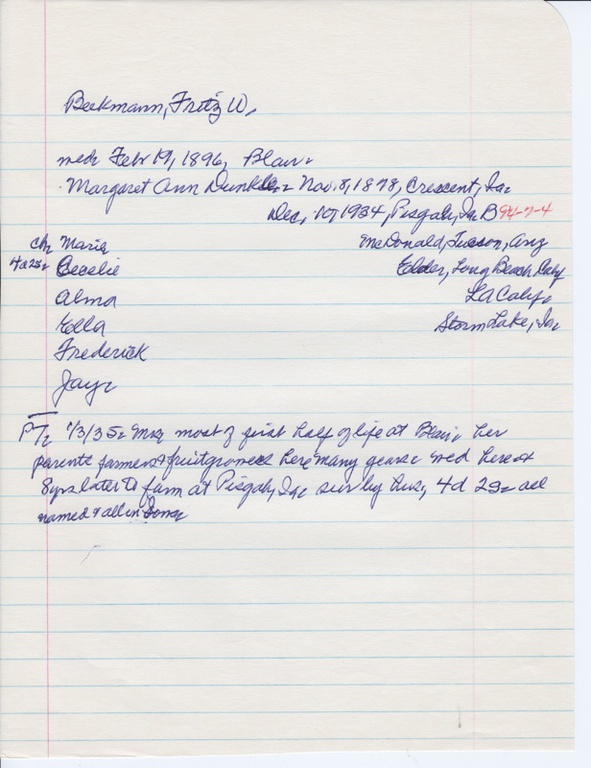 Beekmann, Fritz W.
med. Febr 19, 1896, Blair.
Margaret Ann Nov. 8, 1878, Crescent, Ia.
Dec, 10, 1934, Pisgah, Ia B 94-7-4
ch. Maria McDonald, Tucson, Ariz
4d 2s. Cecelie Elder, Long Beach, Calif
Alma LA Calif.
Ella Storm Lake, Ia.
Frederick
Jay.
PT. 1/3/35. most of first half of life at Blair. her
parents farmers & fruitgrowers here many years. wed here &
8 yrs later to farm at Pisgah, Ia. sur by hus, 4d 2s. all
named & all in